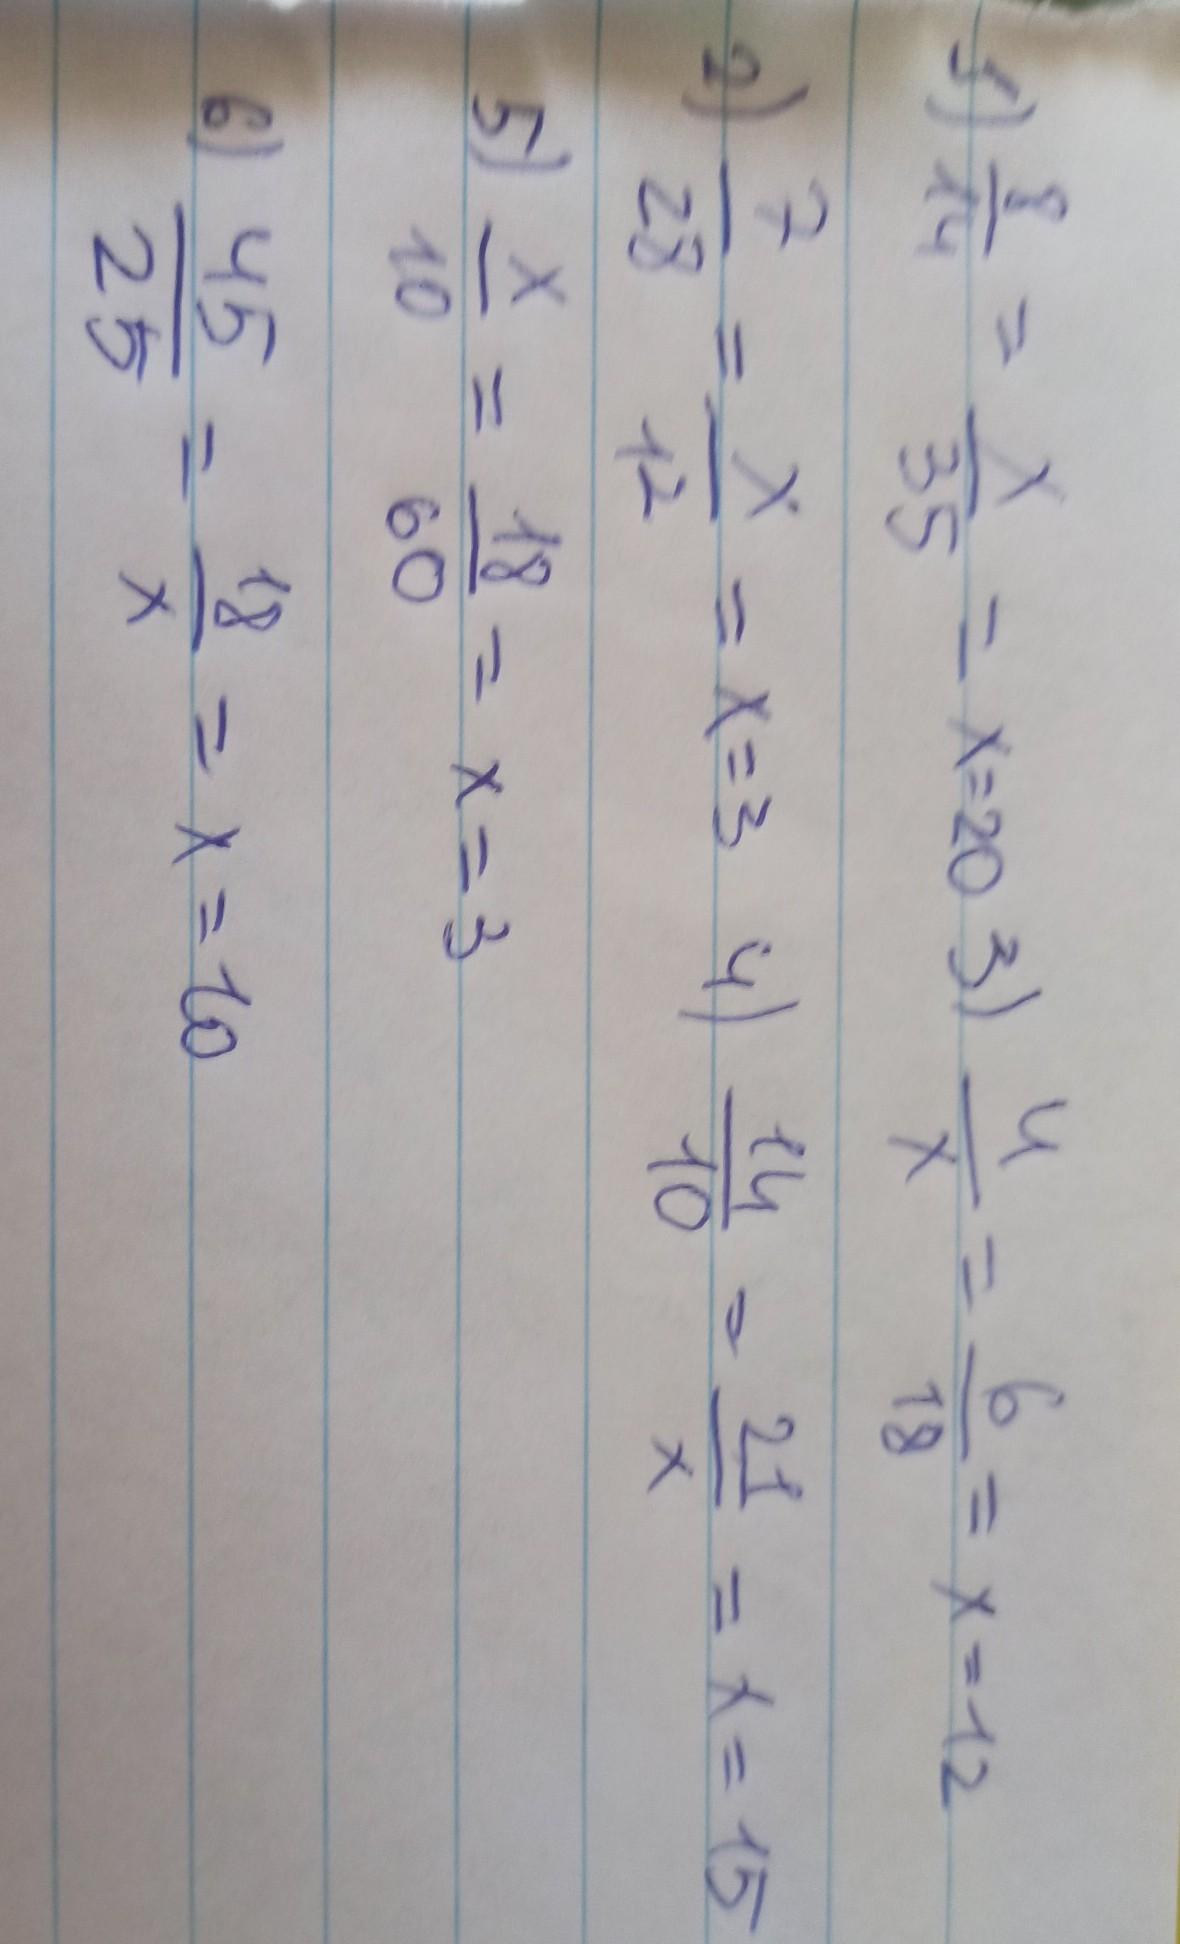 1) 8/14 = x/35 = x=20 3) 4/x = 6/18 = x=12
2) 7/28 = x/12 = x=3 4) 14/10 = 21/x = x=15
5) x/10 = 18/60 = x=3
6) 45/25 = 18/x = x=10